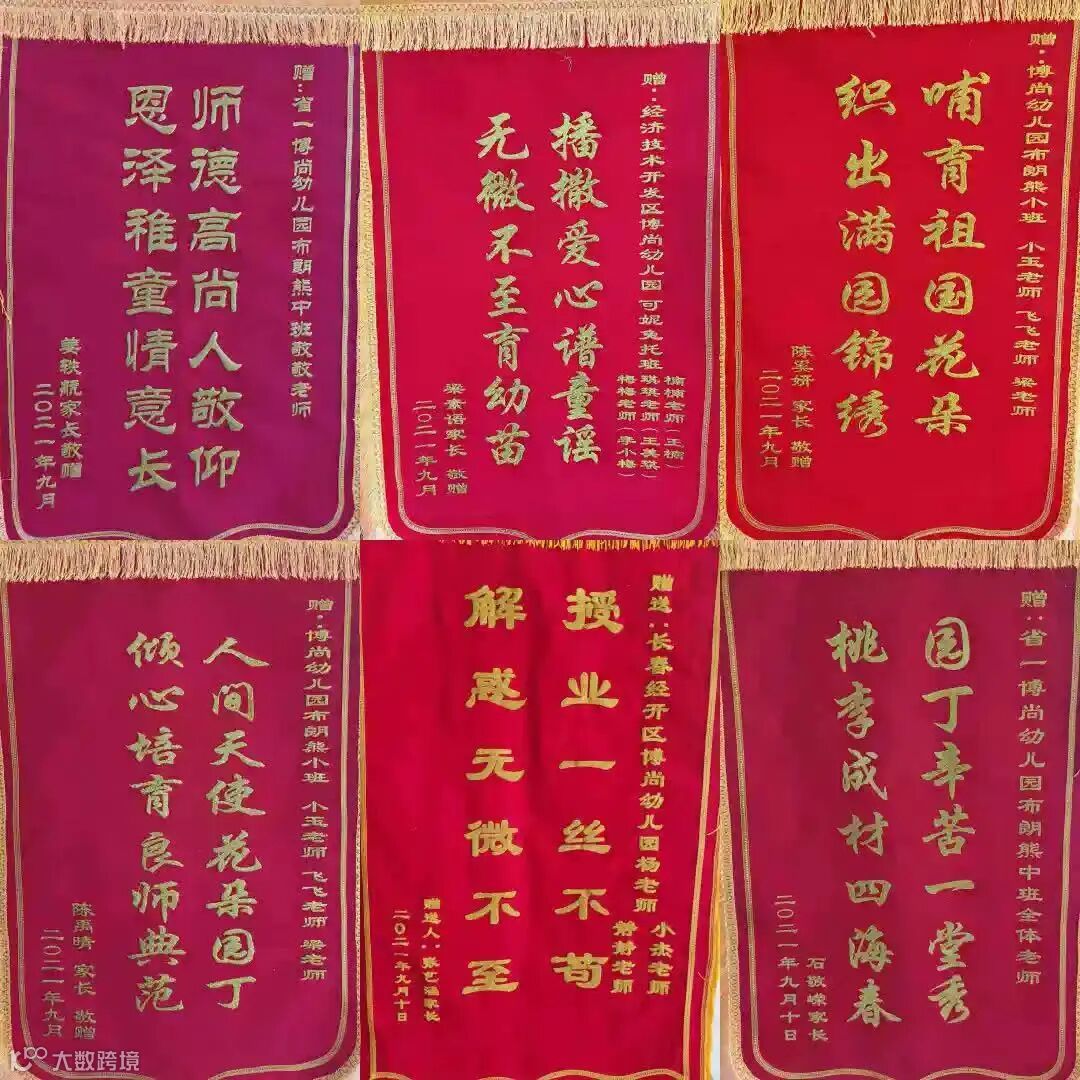 赠：省一博尚幼儿园布朗熊中班敬敬老师
师德高尚人敬仰
恩泽稚童情意长
姜秩航家长敬赠
二〇二一年九月
赠：经济技术开发区博尚幼儿园 可妮兔托班
楠楠老师（王楠）
琪琪老师（王美琪）
梅梅老师（李小梅）
播撒爱心谱童谣
无微不至育幼苗
梁素语家长 敬赠
二〇二一年九月
赠：博尚幼儿园布朗熊小班 小玉老师 飞飞老师 梁老师
哺育祖国花朵
织出满园锦绣
陈奚妍 家长 敬赠
二〇二一年九月
赠：博尚幼儿园布朗熊小班 小玉老师 飞飞老师 梁老师
人间天使花朵园丁
倾心培育良师典范
陈禹晴 家长 敬赠
二〇二一年九月
赠送：长春经开区博尚幼儿园杨老师
小杰老师
静静老师
授业一丝不苟
解惑无微不至
赠送人：张艺涵家长
二〇二一年九月十日
赠：省一博尚幼儿园布朗熊中班全体老师
园丁辛苦一堂秀
桃李成材四海春
石敬嵘家长
二〇二一年九月十日
大数跨境